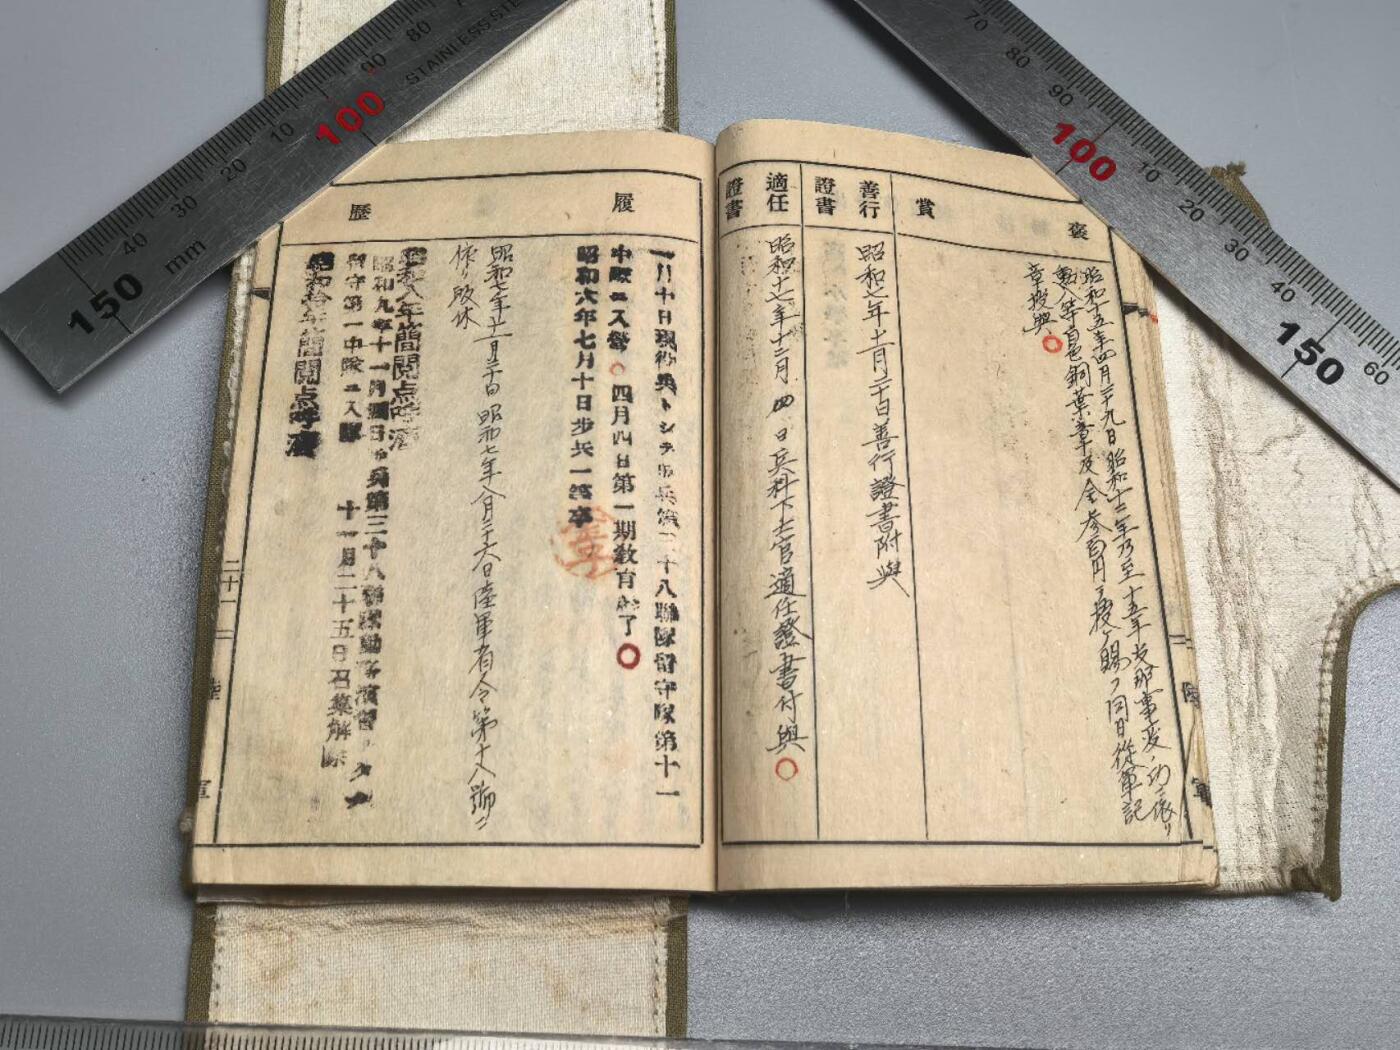 褒賞
昭和十五年四月二十九日昭和十二年乃至十五年支那事変ノ功ニ依リ
勲八等白色桐葉章及金参百円ヲ授ケ賜フ同日従軍記
章授與
善行證書
昭和七年十一月三十日善行證書附與
適任證書
昭和十七年十二月四日兵科下士官適任證書付與
履歴
一月十日現役兵トシテ歩兵第三十八聯隊留守隊第十一
中隊ニ入營 四月四日第一期教育終了
昭和六年七月十日歩兵一等卒
昭和七年十一月三十日昭和七年八月二十六日陸軍省令第十八號ニ
依リ帰休
昭和八年簡閲点呼済
昭和九年十一月
留守第一中隊ニ入隊 十一月二十五日召集解除
昭和拾年簡閲点呼済
二十一
陸軍
陸軍
STAINLESS STE
80
90
100
10
20
30
40
mm
150
70
80
90
100
10
20
30
40
150
60